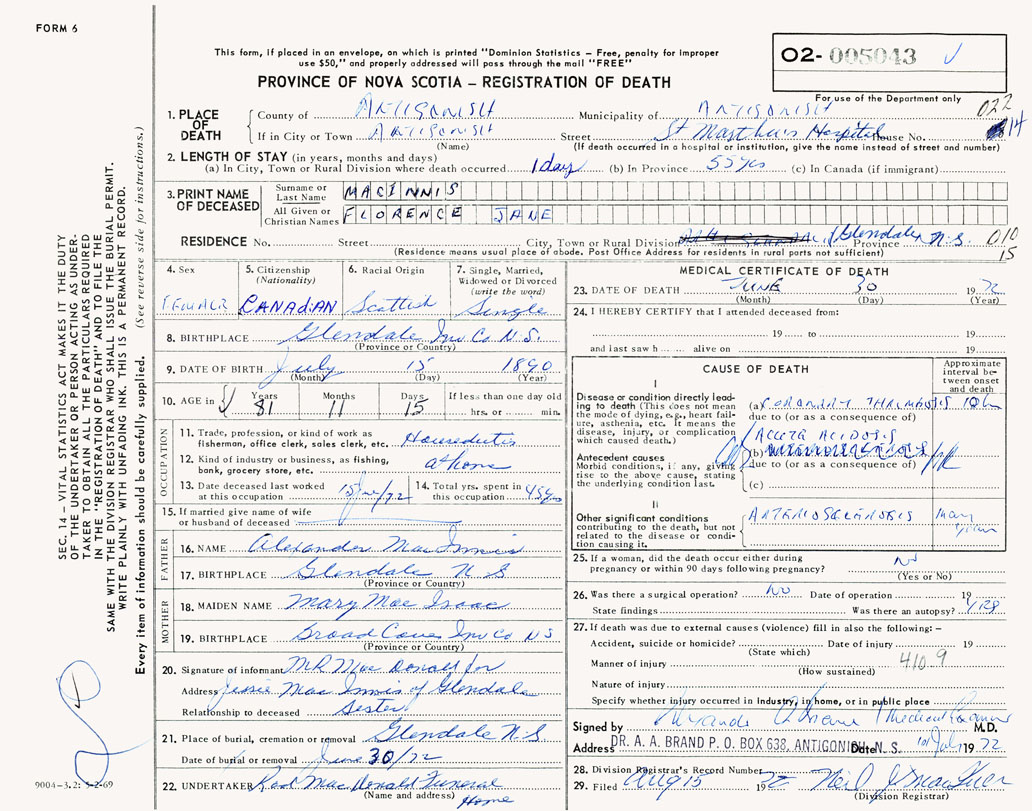 FORM 6
This form, if placed in an envelope, on which is printed "Dominion Statistics – Free, penalty for improper
use $50," and properly addressed will pass through the mail "FREE"
PROVINCE OF NOVA SCOTIA – REGISTRATION OF DEATH
O2- 005043
For use of the Department only
022
14
1. PLACE OF DEATH
County of ANTIGONISH Municipality of ANTIGONISH
If in City or Town ANTIGONISH Street St Martha's Hospital House No.
(Name) (If death occurred in a hospital or institution, give the name instead of street and number)
2. LENGTH OF STAY (in years, months and days)
(a) In City, Town or Rural Division where death occurred 1 day (b) In Province 55 yrs (c) In Canada (if immigrant)
3. PRINT NAME OF DECEASED
Surname or Last Name MACINNIS
All Given or Christian Names FLORENCE JANE
RESIDENCE No. Street City, Town or Rural Division Glendale Province N.S. 010
15
(Residence means usual place of abode. Post Office Address for residents in rural parts not sufficient)
4. Sex FEMALE
5. Citizenship (Nationality) CANADiAN
6. Racial Origin Scottish
7. Single, Married, Widowed or Divorced (write the word) Single
8. BIRTHPLACE Glendale Inv Co N.S.
(Province or Country)
9. DATE OF BIRTH July 15 1890
(Month) (Day) (Year)
10. AGE in Years 81 Months 11 Days 15 If less than one day old hrs. or min.
OCCUPATION
11. Trade, profession, or kind of work as fisherman, office clerk, sales clerk, etc. Houseduties
12. Kind of industry or business, as fishing, bank, grocery store, etc. at home
13. Date deceased last worked at this occupation 15 /72
14. Total yrs. spent in this occupation 45 yrs
15. If married give name of wife or husband of deceased
FATHER
16. NAME Alexander MacInnis
17. BIRTHPLACE Glendale N S
(Province or Country)
MOTHER
18. MAIDEN NAME Mary Mac Isaac
19. BIRTHPLACE Broad Cove Inv Co NS
(Province or Country)
20. Signature of informant MR Mac Donald for
Address Jessie Mac Innis of Glendale
Relationship to deceased Sister
21. Place of burial, cremation or removal Glendale N.S
Date of burial or removal June 30/72
22. UNDERTAKER Rod MacDonald Funeral
(Name and address) Home
MEDICAL CERTIFICATE OF DEATH
23. DATE OF DEATH JUNE 30 1972
(Month) (Day) (Year)
24. I HEREBY CERTIFY that I attended deceased from:
19 to 19
and last saw h alive on 19
CAUSE OF DEATH
Approximate interval between onset and death
I
Disease or condition directly leading to death (This does not mean the mode of dying, e.g., heart failure, asthenia, etc. It means the disease, injury, or complication which caused death.)
(a) CORONARY THROMBOSIS 10 h
due to (or as a consequence of)
Antecedent causes
Morbid conditions, if any, giving rise to the above cause, stating the underlying condition last.
ACUTE ACIDOSIS
(b)
due to (or as a consequence of)
(c)
II
Other significant conditions contributing to the death, but not related to the disease or condition causing it.
ARTERIOSCLEROSIS many years
25. If a woman, did the death occur either during pregnancy or within 90 days following pregnancy? No
(Yes or No)
26. Was there a surgical operation? NO Date of operation 19
State findings Was there an autopsy? YES
27. If death was due to external causes (violence) fill in also the following: –
Accident, suicide or homicide? Date of injury 19
(State which)
Manner of injury 410.9
(How sustained)
Nature of injury
Specify whether injury occurred in industry, in home, or in public place
Signed by (Medical Examiner) M.D.
Address DR. A. A. BRAND P. O. BOX 638, ANTIGONISH, N. S. Date 10 July 1972
28. Division Registrar's Record Number
29. Filed Aug 15 1972 Neil J MacIsaac
(Division Registrar)
SEC. 14 – VITAL STATISTICS ACT MAKES IT THE DUTY
OF THE UNDERTAKER OR PERSON ACTING AS UNDER-
TAKER TO OBTAIN ALL THE PARTICULARS REQUIRED
IN THE "REGISTRATION OF DEATH" AND TO FILE THE
SAME WITH THE DIVISION REGISTRAR WHO SHALL ISSUE THE BURIAL PERMIT.
WRITE PLAINLY WITH UNFADING INK. THIS IS A PERMANENT RECORD.
Every item of information should be carefully supplied. (See reverse side for instructions.)
9004-3.2: 5-2-69